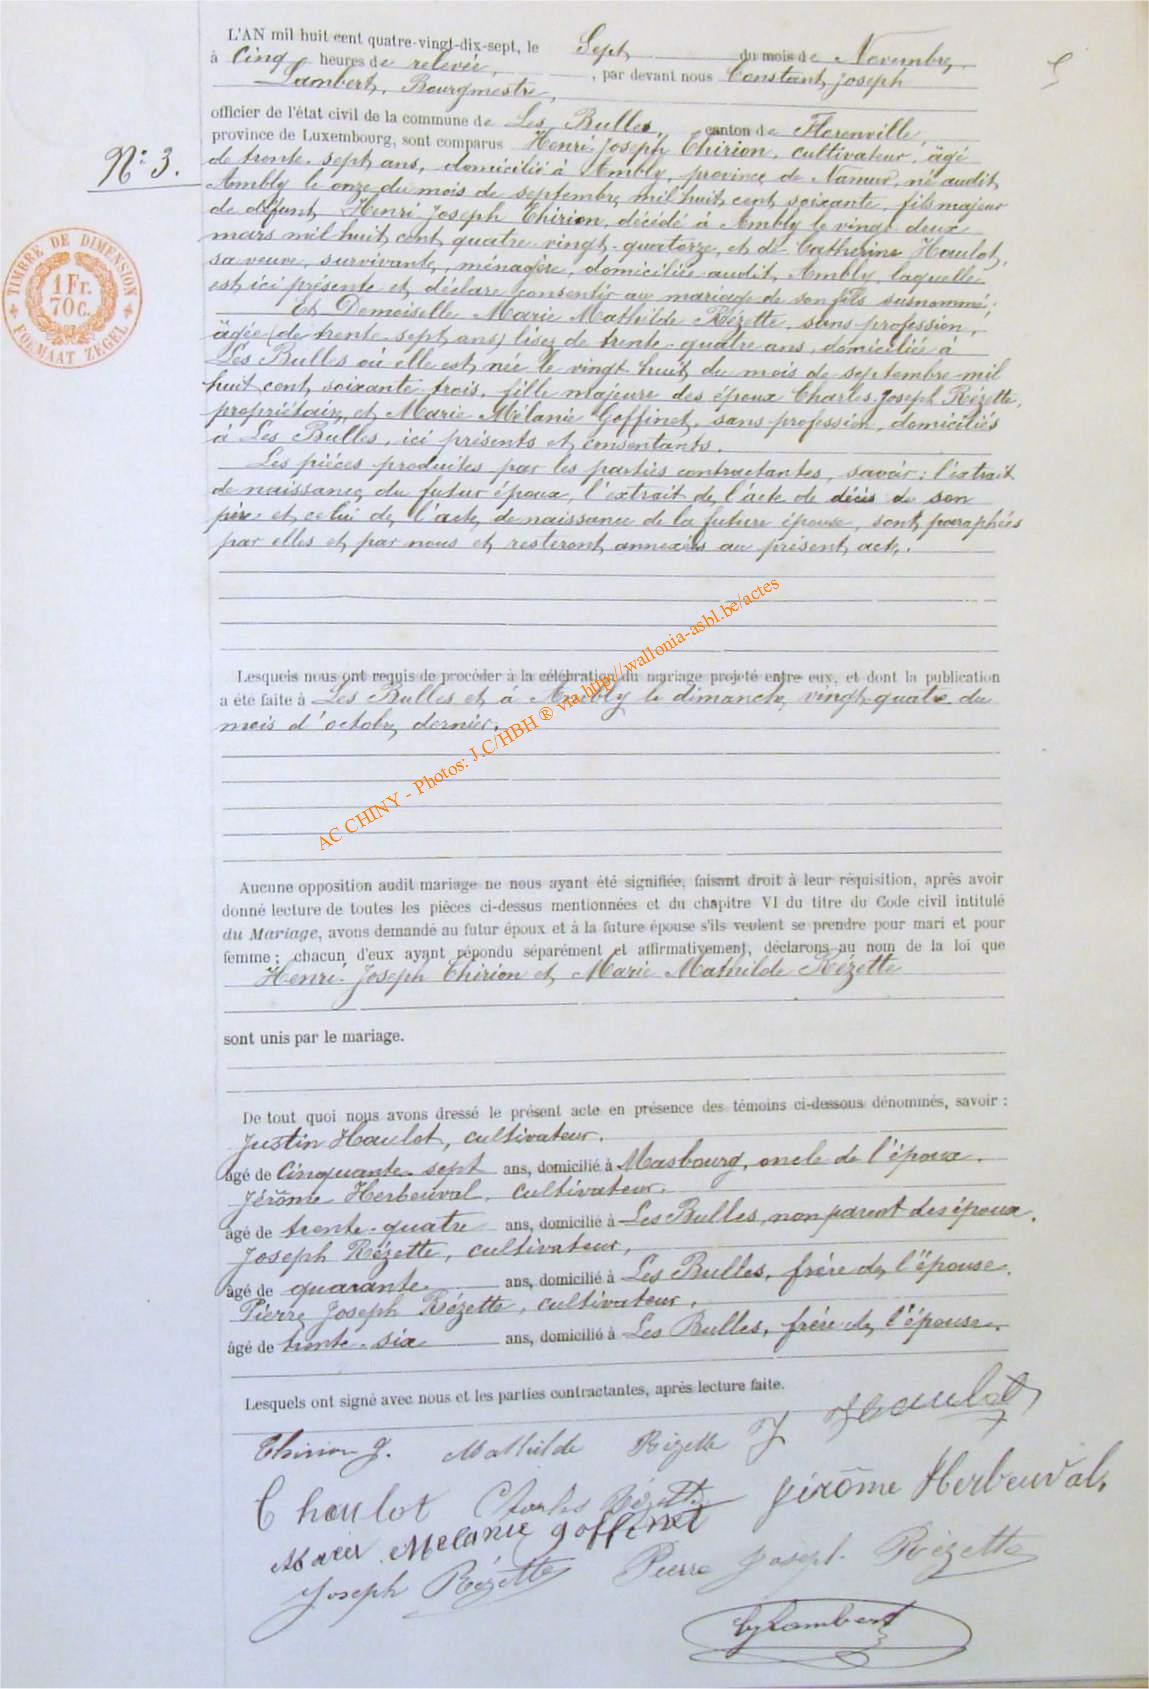 L'AN mil huit cent quatre-vingt-dix-sept, le Sept du mois de Novembre,
à Cinq heures de relevée, , par devant nous Constant Joseph
Lambert, Bourgmestre,
officier de l'état civil de la commune de Les Bulles, canton de Florenville,
province de Luxembourg, sont comparus Henri-Joseph Thirion, cultivateur, âgé
N° 3.
de trente-sept ans, domicilié à Ambly, province de Namur, né audit
Ambly le onze du mois de septembre mil huit cent soixante, fils majeur
de défunt Henri Joseph Thirion, décédé à Ambly le vingt-deux
mars mil huit cent quatre vingt-quatorze, et de Catherine Haulot,
sa veuve, survivante, ménagère, domiciliée audit Ambly, laquelle
est ici présente et déclare consentir au mariage de son fils susnommé;
Et Demoiselle Marie Mathilde Rézette, sans profession,
âgée (de trente-sept ans) lisez de trente-quatre ans, domiciliée à
Les Bulles où elle est née le vingt huit du mois de septembre mil
huit cent soixante-trois, fille majeure des époux Charles-Joseph Rézette,
propriétaire, et Marie Mélanie Goffinet, sans profession, domiciliés
à Les Bulles, ici présents et consentants.
Les pièces produites par les parties contractantes, savoir: l'extrait
de naissance du futur époux, l'extrait de l'acte de décès de son
père et celui de l'acte de naissance de la future épouse, sont paraphées
par elles et par nous et resteront annexées au présent acte.
TIMBRE DE DIMENSION
1 Fr.
70 C.
FORMAAT ZEGEL
Lesquels nous ont requis de procéder à la célébration du mariage projeté entre eux, et dont la publication
a été faite à Les Bulles et à Ambly le dimanche vingt-quatre du
mois d'octobre dernier.
AC CHINY - Photos: J.C/HBH ® via http://wallonia-asbl.be/actes
Aucune opposition audit mariage ne nous ayant été signifiée, faisant droit à leur réquisition, après avoir
donné lecture de toutes les pièces ci-dessus mentionnées et du chapitre VI du titre du Code civil intitulé
du Mariage, avons demandé au futur époux et à la future épouse s'ils veulent se prendre pour mari et pour
femme; chacun d'eux ayant répondu séparément et affirmativement, déclarons au nom de la loi que
Henri-Joseph Thirion et Marie Mathilde Rézette
sont unis par le mariage.
De tout quoi nous avons dressé le présent acte en présence des témoins ci-dessous dénommés, savoir:
Justin Haulot, cultivateur.
âgé de Cinquante-sept ans, domicilié à Masbourg, oncle de l'époux.
Jérôme Herbeuval, cultivateur.
âgé de trente-quatre ans, domicilié à Les Bulles, non parent des époux.
Joseph Rézette, cultivateur,
âgé de quarante ans, domicilié à Les Bulles, frère de l'épouse.
Pierre Joseph Rézette, cultivateur,
âgé de trente-six ans, domicilié à Les Bulles, frère de l'épouse.
Lesquels ont signé avec nous et les parties contractantes, après lecture faite.
Thirion J. Mathilde Rézette J Haulot
C Haulot Charles Rézette Jérôme Herbeuval,
Marie Mélanie Goffinet
Joseph Rézette Pierre Joseph Rézette
CJLambert